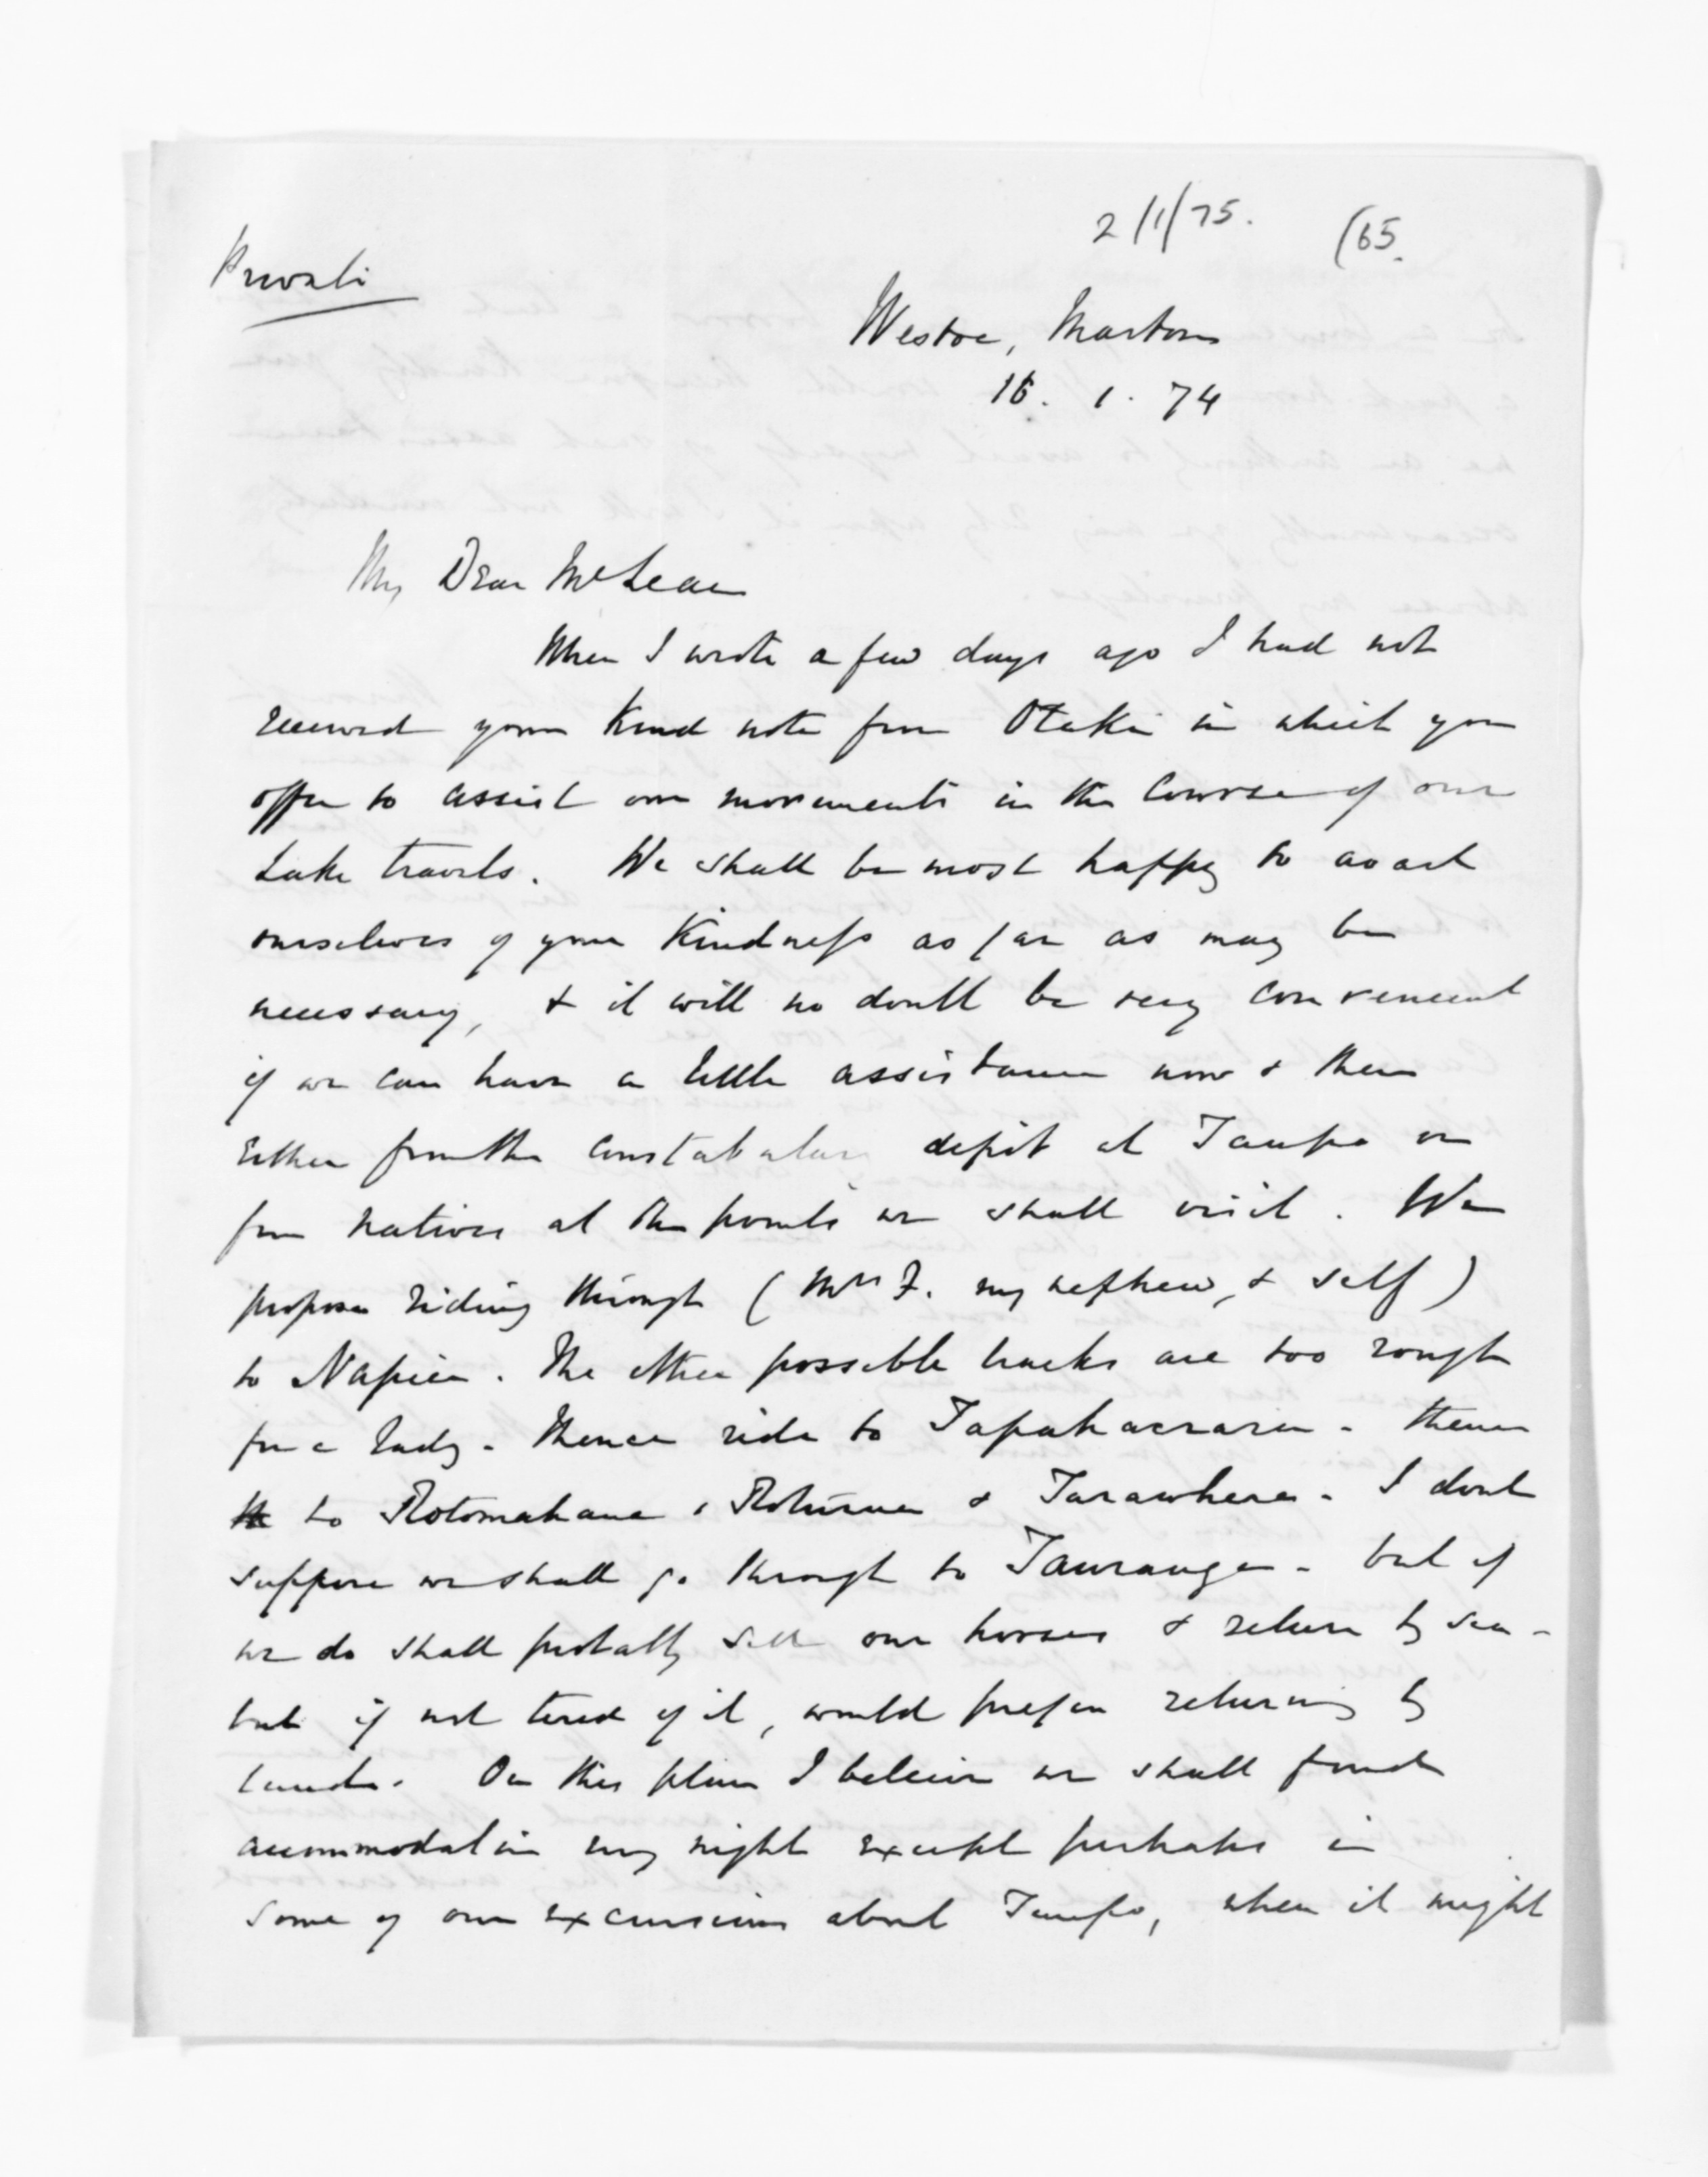 2/1/75. (65.
Private
Westoe, Marton
16. 1. 74
My Dear McLean
When I wrote a few days ago I had not
received your kind note from Otaki in which you
offer to assist our movements in the course of our
Lake travels. We shall be most happy to avail
ourselves of your Kindness as far as may be
necessary, & it will no doubt be very convenient
if we can have a little assistance now & then
Either from the Constabulary depôt at Taupo or
from natives at the points we shall visit. We
propose riding through (Mrs F. my nephew, & self)
to Napier. The other possible tracks are too rough
for a lady. Thence ride to Tapuaeharuru - thence
to Rotomahana, Rotorua & Tarawhera. I dont
suppose we shall go through to Tauranga - but if
we do shall probably sell our horses & return by sea -
but if not tired of it, would prefer returning by
land. On this plan I beleive we shall find
accommodation every night except perhaps in
some of our excursions about Taupo, when it might